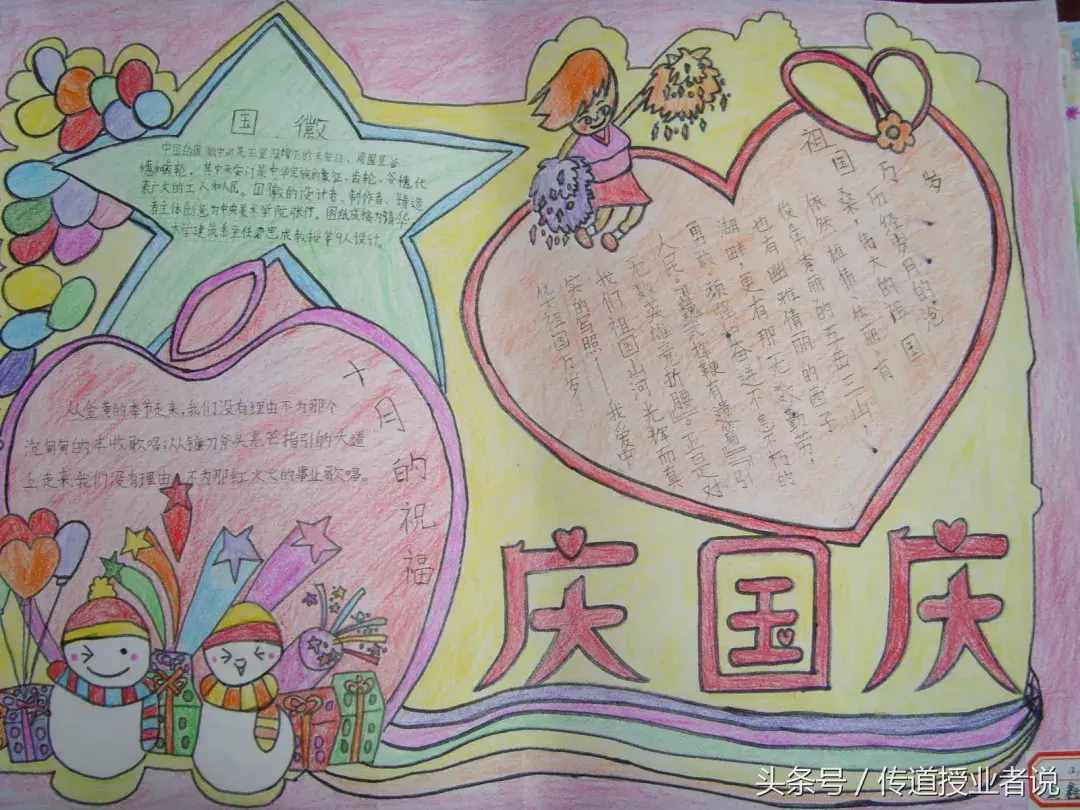 国徽
穗和齿轮。其中天安门是中华民族的象征,齿轮、谷穗代
表广大的工人和人民。国徽的设计者、制作者、铸造
者主体创意为中央美术学院张仃。图纸成稿为清华
大学建筑系主任梁思成教授等9人设计。
祖国万岁
历经岁月的沧
桑,伟大的祖国
依然雄伟、壮丽。有
俊奇青丽的五岳三山,
也有幽雅倩丽的西子
湖畔,更有那无数勤劳、
勇敢、顽强和奋进不息不朽的
人民。
无数英雄竞折腰。正是对
我们祖国山河光辉而真
实的写照!——我爱中
华祖国万岁
十月的祝福
从金黄的季节走来,我们没有理由不为那个
沉甸甸的丰收歌唱;从镰刀斧头光芒指引的大道
上走来,我们没有理由不为那红火火的事业歌唱。
庆国庆
头条号/传道授业者说